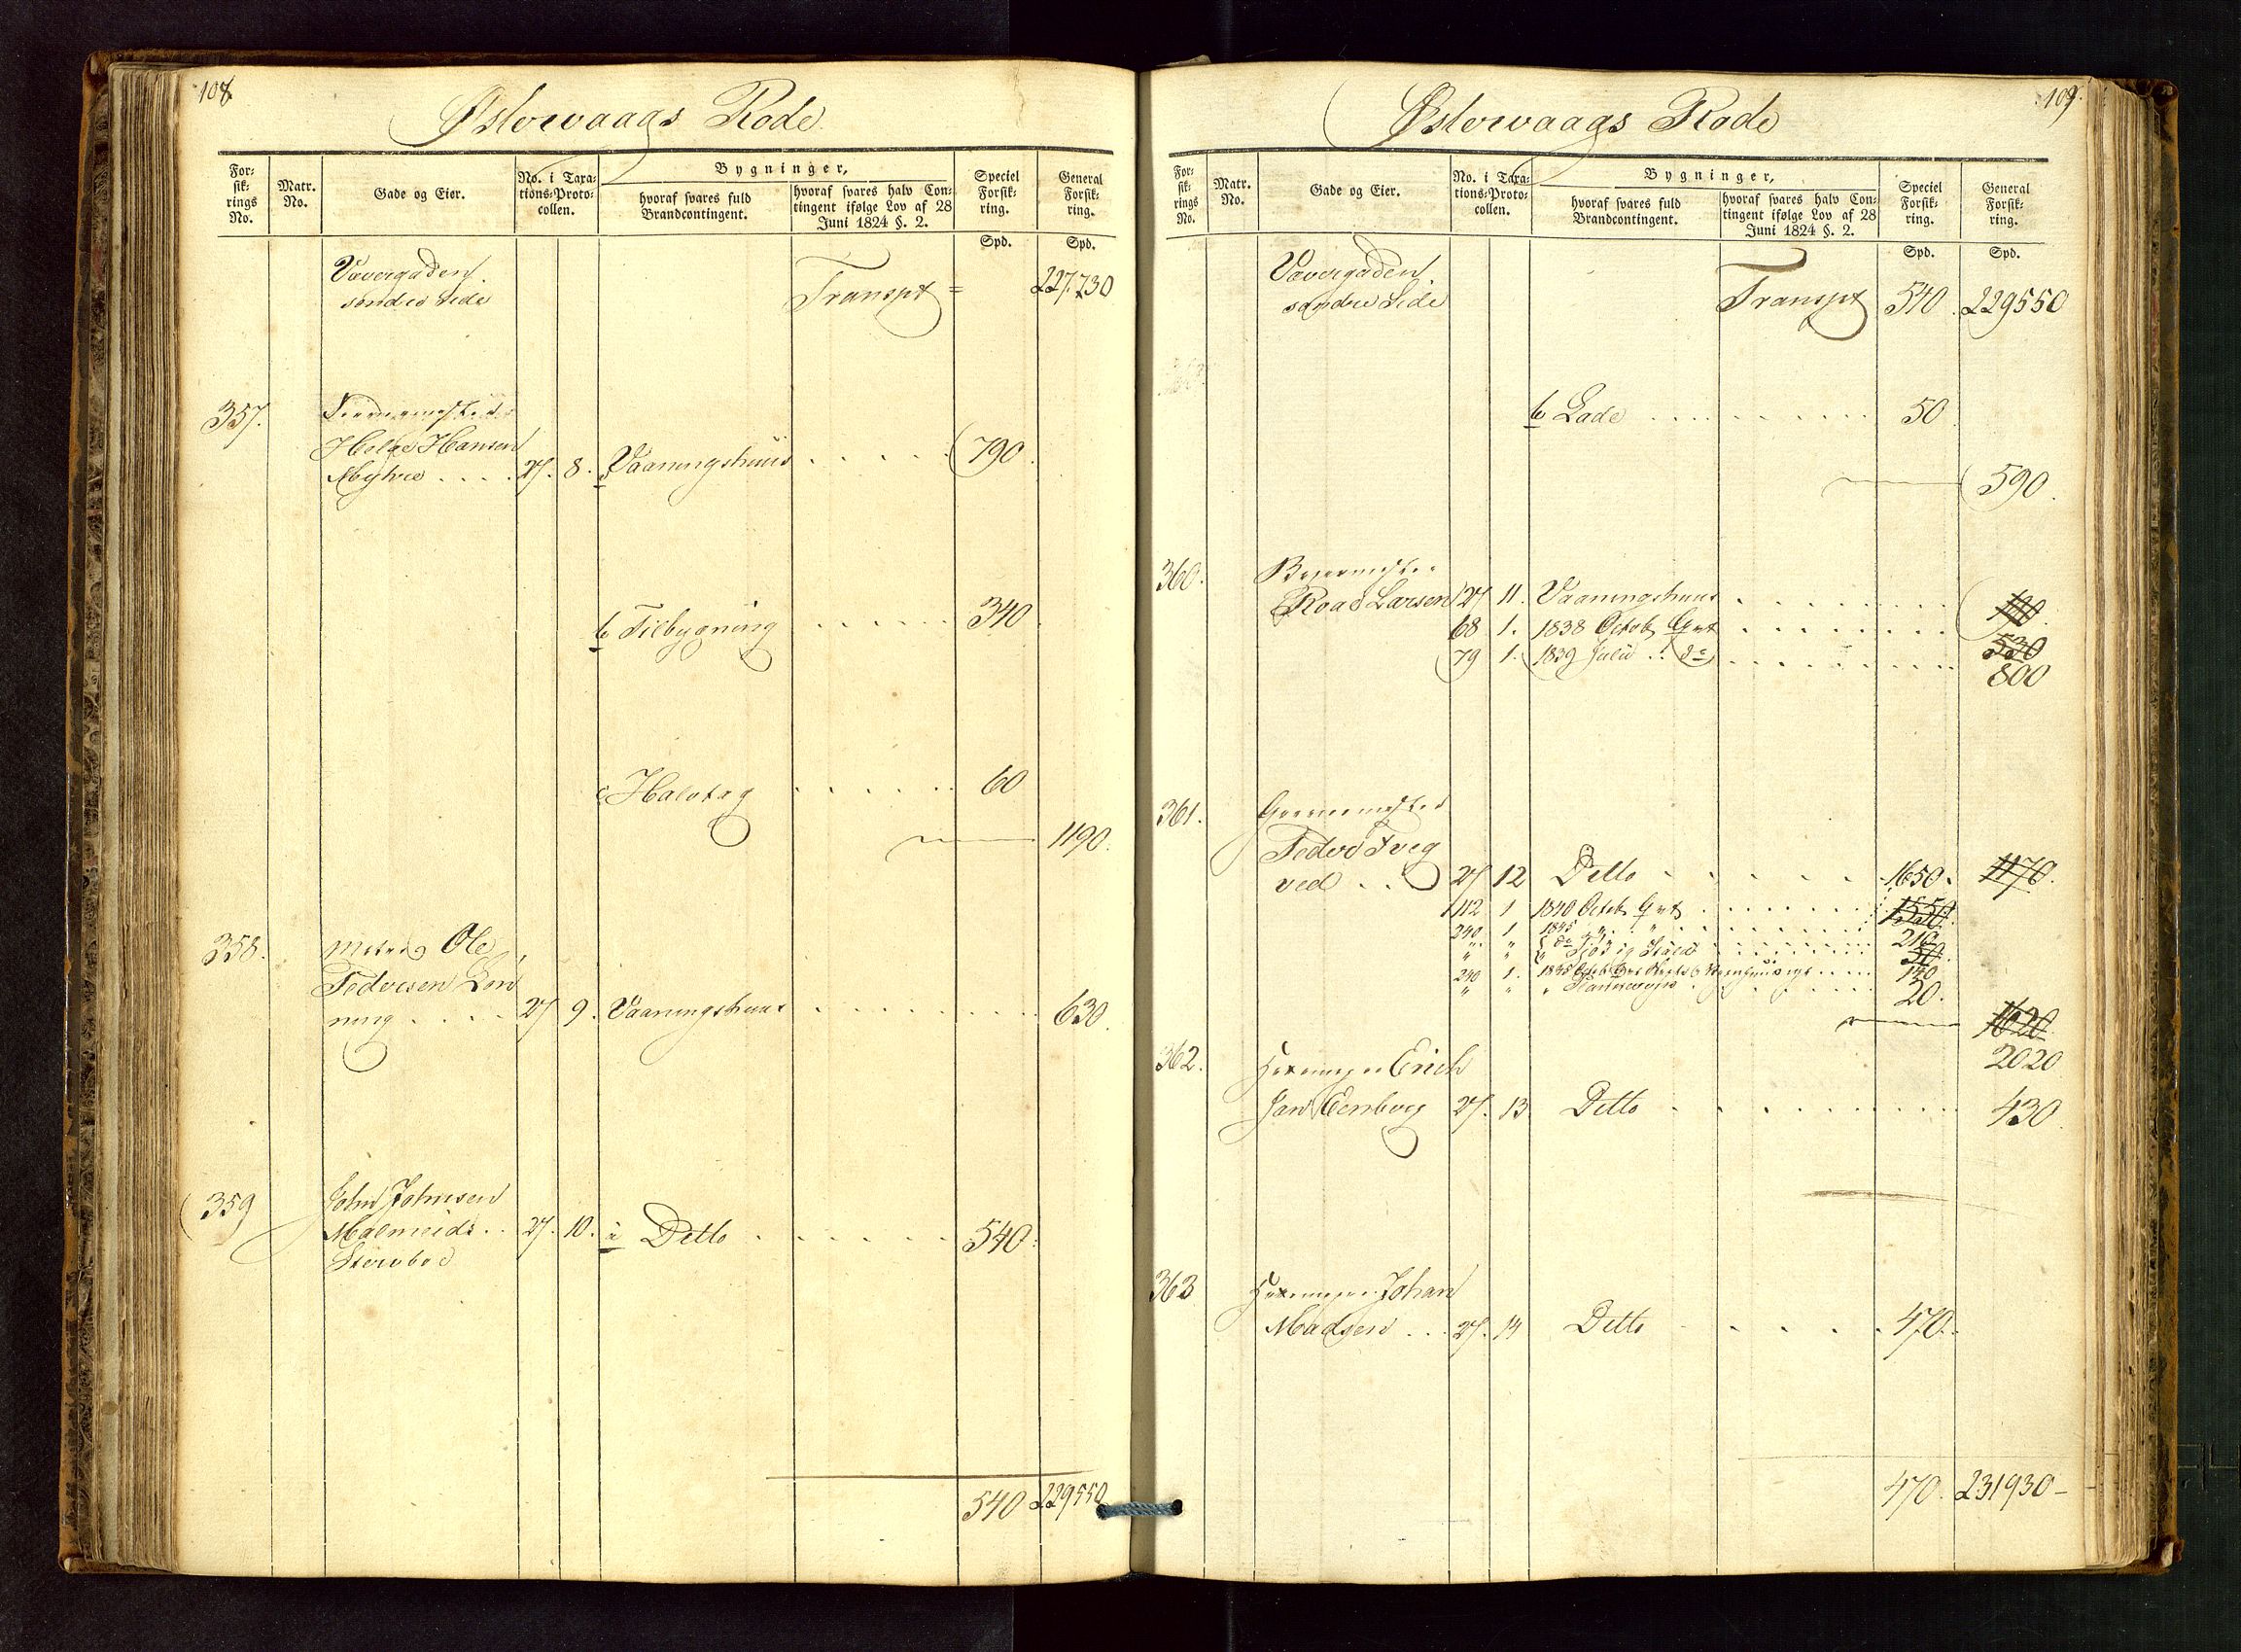 108.
Østervaags Rode
For-
sik-
rings
No.
Matr.
No.
Gade og Eier.
No. i Taxa-
tions-Proto-
collen.
Bygninger,
hvoraf svares fuld
Brandcontingent.
hvoraf svares halv Con-
tingent ifølge Lov af 28
Juni 1824 §. 2.
Speciel
Forsik-
ring.
General
Forsik-
ring.
Spd.
Spd.
Vævergaden
søndre Side
Transpt = 227,230
357.
Helge Hansen
Myhre . . . . 27. 8. a Vaaningshuus . . . . . 790.
b Tilbygning . . . . . . 340.
c Halvtag . . . . . . 60
1190.
358. Ole
Pedersen Løn
ning . . . . 27 9. Vaaningshuus . . . . . . . . . 630.
359 John Johnsen
Malmeids . . 27. 10. a Ditto . . . . . . 540.
Sterboe
540 229550
109.
Østervaags Rode
For-
sik-
rings
No.
Matr.
No.
Gade og Eier.
No. i Taxa-
tions-Proto-
collen.
Bygninger,
hvoraf svares fuld
Brandcontingent.
hvoraf svares halv Con-
tingent ifølge Lov af 28
Juni 1824 §. 2.
Speciel
Forsik-
ring.
General
Forsik-
ring.
Spd.
Spd.
Vævergaden
søndre Side
Transpt 540. 229550
b Lade . . . . . . . . . 50
590.
360.
Road Larsen 27 11. Vaaningshuus . . . . . . . .
68 1. 1838 Octob. . . . . . . . . 530
79 1. 1839 Julii . . do . . . . . . . . 800
361.
Peder Tveg
ved . . 27 12 Ditto . . . . . . 1650. 1170.
112 1 1840 Octob. . . . . . . . 1550.
240. 1 1845 " . . . . . . . . 210
" " . . . . . . . . 50
240 1. 1845 Octob. . . . . 140
" " " . . . . . . 20.
1620
2020
362. Erich
Jan Eenberg 27. 13 Ditto . . . . . . . . . 430.
363 Johan
Madsen . . . 27. 14 Ditto . . . . . . 470.
470. 231930-